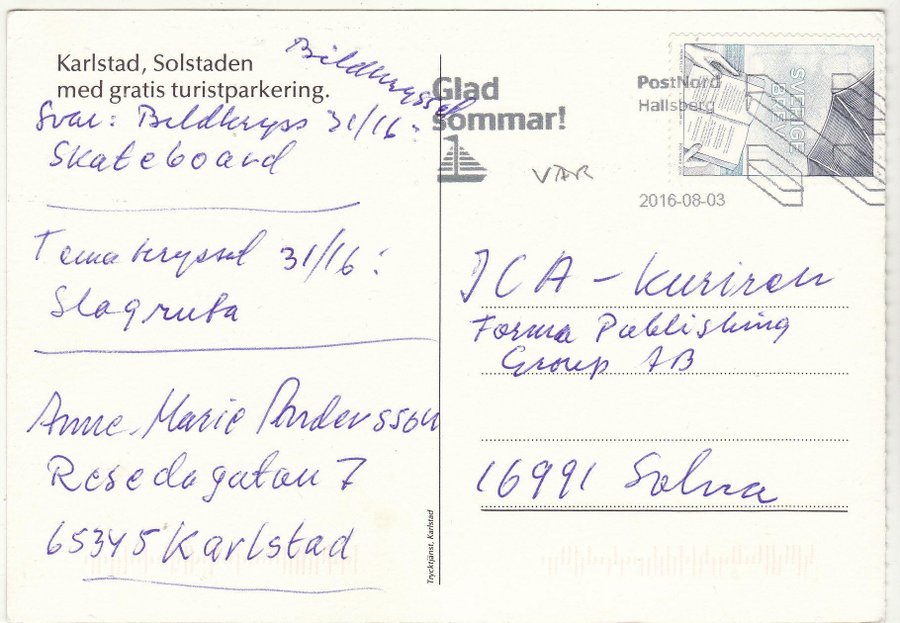 Karlstad, Solstaden
med gratis turistparkering.
Bildkryssel
Svar: Bildkryss 31/16:
Skateboard
Temakryssel 31/16:
Slagruta
Anne-Marie Andersson
Resedagatan 7
65345 Karlstad
Trycktjänst, Karlstad
Glad
sommar!
VAR
PostNord
Hallsberg
SVERIGE
BREV
2016-08-03
ICA-Kuriren
Forma Publishing
Group AB
16991 Solna